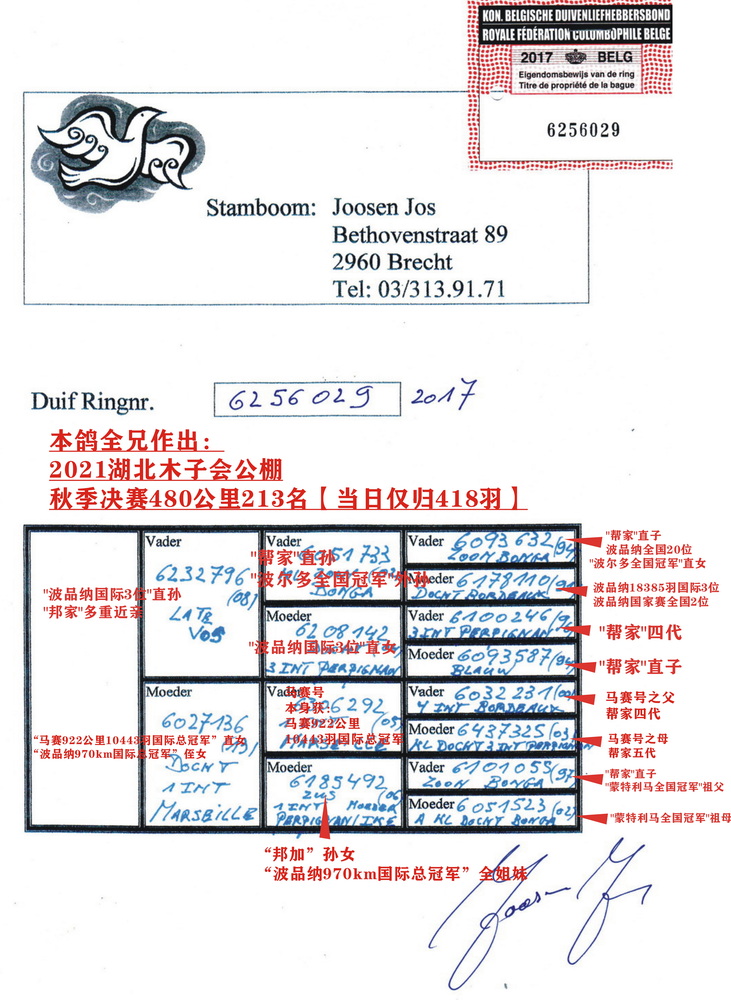 KON. BELGISCHE DUIVENLIEFHEBBERSBOND
ROYALE FÉDÉRATION COLUMBOPHILE BELGE
2017 BELG
Eigendomsbewijs van de ring
Titre de propriété de la bague
6256029
Stamboom: Joosen Jos
Bethovenstraat 89
2960 Brecht
Tel: 03/313.91.71
Duif Ringnr. 6256029 2017
本鸽全兄作出：
2021湖北木子会公棚
秋季决赛480公里213名【当日仅归418羽】
Vader
6232796
(08)
LATE
VOS
"波品纳国际3位"直孙
"邦家"多重近亲
Moeder
6027136
DOCHT
1 INT
MARSEILLE
"马赛922公里10443羽国际总冠军"直女
"波品纳970km国际总冠军"侄女
Vader
6051733
BONGA
"帮家"直孙
"波尔多全国冠军"外孙
Moeder
6208142
3 INT PERPIGNAN
"波品纳国际3位"直女
Vader
6306292
马赛号
本身获：
马赛922公里
10443羽国际总冠军
Moeder
6185492
ZUS (06
1 INT MOEDER
PERPIGNAN/IKE
"邦加"孙女
"波品纳970km国际总冠军"全姐妹
Vader 6093632 (94)
ZOON BONGA
"帮家"直子
波品纳全国20位
"波尔多全国冠军"直女
Moeder 6178110
DOCHT BORDEAUX
波品纳18385羽国际3位
波品纳国家赛全国2位
Vader 6100246
3 INT PERPIGNAN
"帮家"四代
Moeder 6093587
BLAUW
"帮家"直子
Vader 6032231
4 INT BORDEAUX
马赛号之父
帮家四代
Moeder 6437325 (03)
KL DOCHT 3 INT PERPIGNAN
马赛号之母
帮家五代
Vader 6101055 (97
ZOON BONGA
"帮家"直子
"蒙特利马全国冠军"祖父
Moeder 6051523 (02)
A KL DOCHT BONGA
"蒙特利马全国冠军"祖母
Joosen J